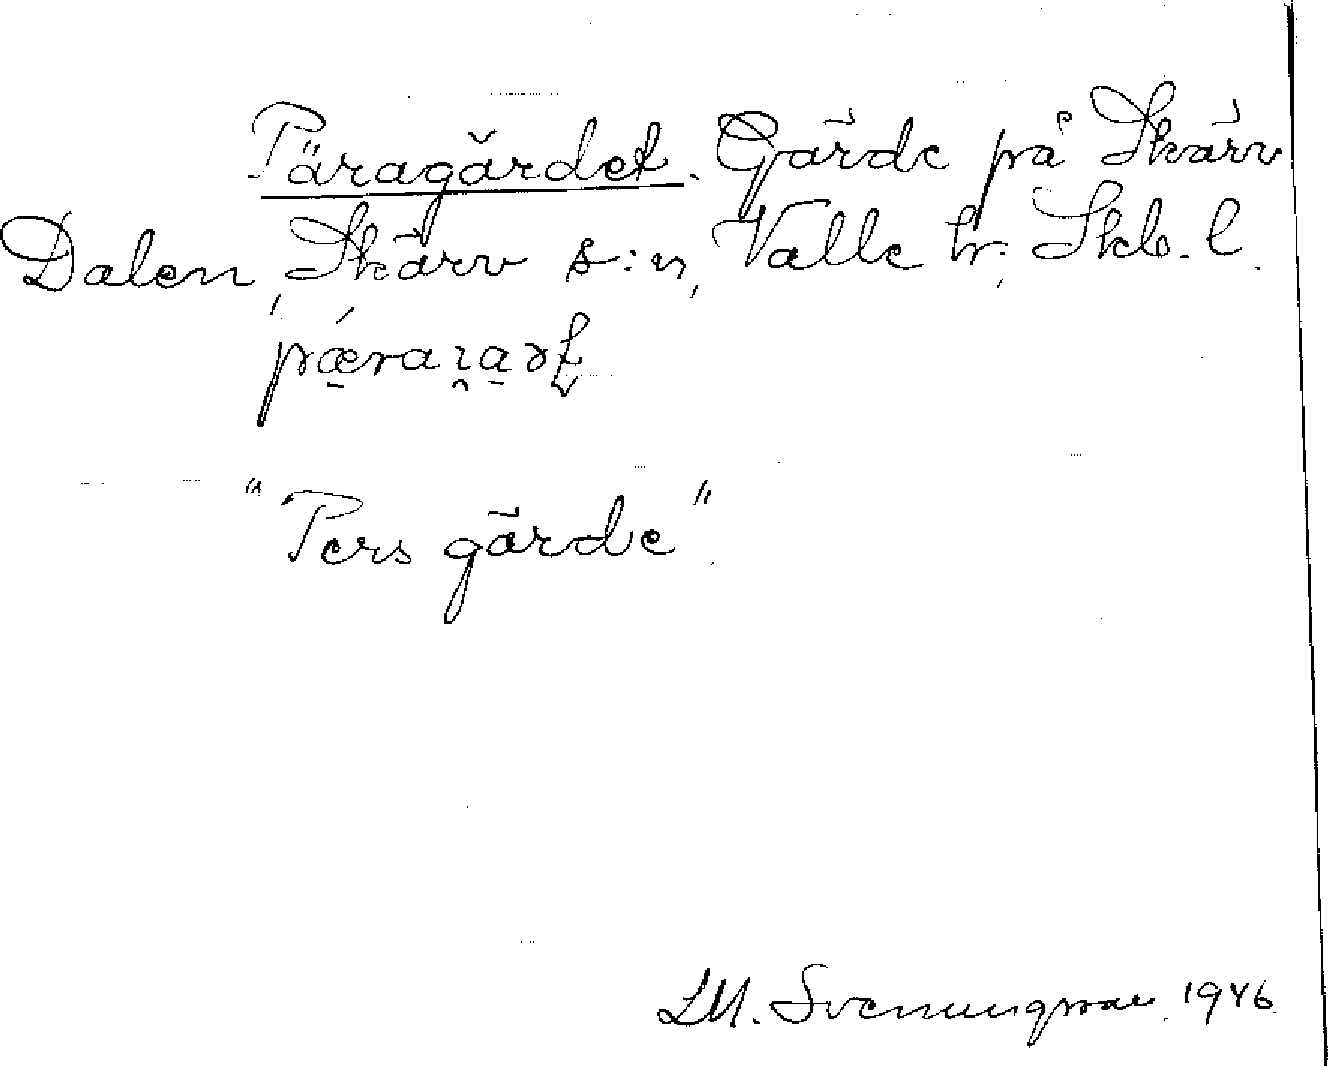 Päragärdet. Gärde på Skärv
Dalen, Skärv s:n, Valle hr. Skb. l.
"Pers gärde".
S.M. Svenungsson 1946